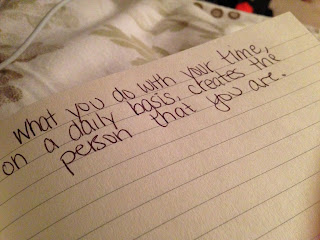 What you do with your time,
on a daily basis, creates the
person that you are.